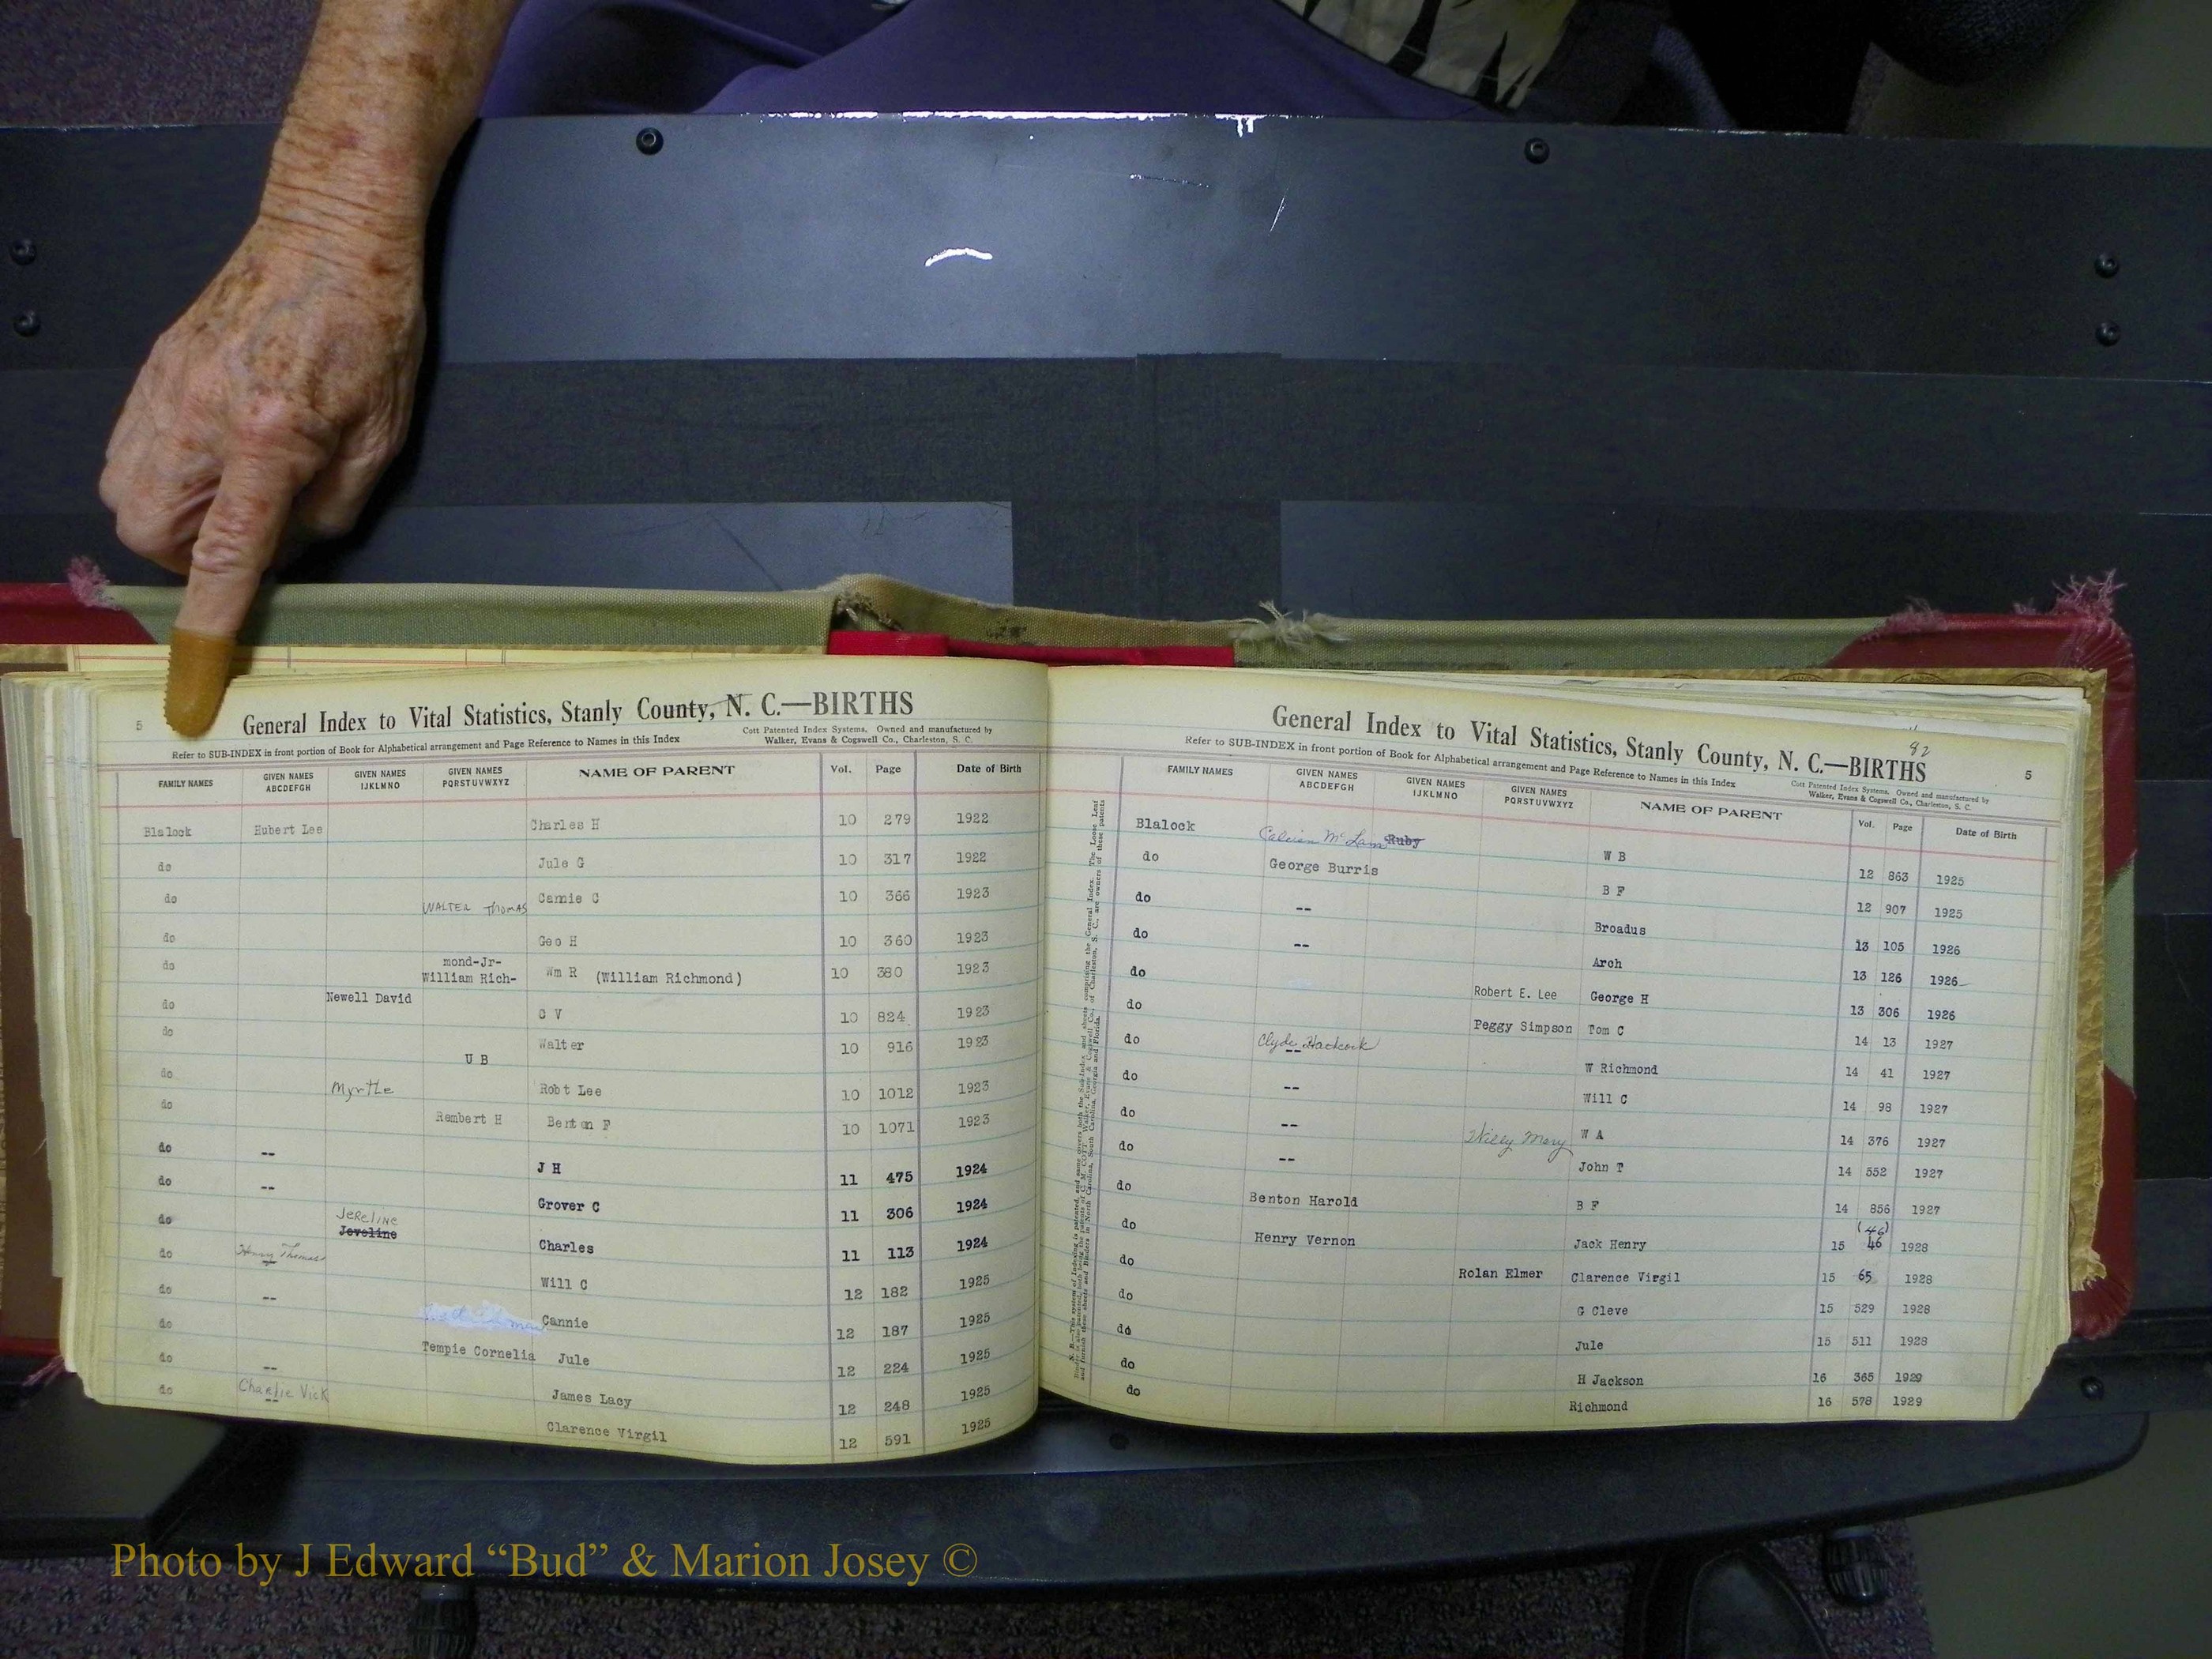 5
General Index to Vital Statistics, Stanly County, N. C.—BIRTHS
Refer to SUB-INDEX in front portion of Book for Alphabetical arrangement and Page Reference to Names in this Index
Cott Patented Index Systems. Owned and manufactured by
Walker, Evans & Cogswell Co., Charleston, S. C.
FAMILY NAMES GIVEN NAMES ABCDEFGH GIVEN NAMES IJKLMNO GIVEN NAMES PQRSTUVWXYZ NAME OF PARENT Vol. Page Date of Birth
Blalock Hubert Lee Charles H 10 279 1922
do Jule G 10 317 1922
do WALTER THOMAS Camie C 10 366 1923
do Geo H 10 360 1923
do mond-Jr-
William Rich- Wm R (William Richmond) 10 380 1923
do Newell David C V 10 824 1923
do U B Walter 10 916 1923
do Myrtle Robt Lee 10 1012 1923
do Rembert H Benton F 10 1071 1923
do -- J H 11 475 1924
do -- Grover C 11 306 1924
do JeReLiNe Jeveline Charles 11 113 1924
do Henry Thomas -- Will C 12 182 1925
do -- Cannie 12 187 1925
do Tempie Cornelia Jule 12 224 1925
do -- James Lacy 12 248 1925
do Charlie Vick -- Clarence Virgil 12 591 1925
82
General Index to Vital Statistics, Stanly County, N. C.—BIRTHS
5
Refer to SUB-INDEX in front portion of Book for Alphabetical arrangement and Page Reference to Names in this Index
Cott Patented Index Systems. Owned and manufactured by
Walker, Evans & Cogswell Co., Charleston, S. C.
FAMILY NAMES GIVEN NAMES ABCDEFGH GIVEN NAMES IJKLMNO GIVEN NAMES PQRSTUVWXYZ NAME OF PARENT Vol. Page Date of Birth
Blalock Calvin McLain Ruby W B 12 863 1925
do George Burris B F 12 907 1925
do -- Broadus 13 105 1926
do -- Arch 13 126 1926
do Robert E. Lee George H 13 306 1926
do Peggy Simpson Tom C 14 13 1927
do Clyde -- W Richmond 14 41 1927
do -- Will C 14 98 1927
do -- Mary W A 14 376 1927
do -- John T 14 552 1927
do Benton Harold B F 14 856 1927
do Henry Vernon Jack Henry 15 (46) 46 1928
do Rolan Elmer Clarence Virgil 15 65 1928
do G Cleve 15 529 1928
do Jule 15 511 1928
do H Jackson 16 365 1929
do Richmond 16 578 1929
Photo by J Edward “Bud” & Marion Josey ©